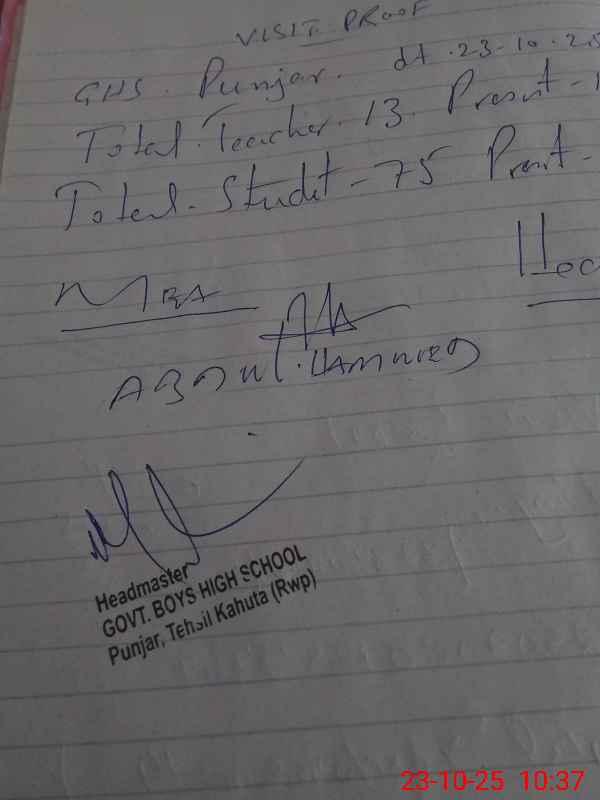 VISIT PROOF
GHS. Punjar. dt. 23-10-25
Total. Teacher. 13. Present - 1
Total. Student - 75 Prent -
MEA
ABDUL. HAMMEED
Headmaster
GOVT. BOYS HIGH SCHOOL
Punjar, Tehsil Kahuta (Rwp)
23-10-25 10:37